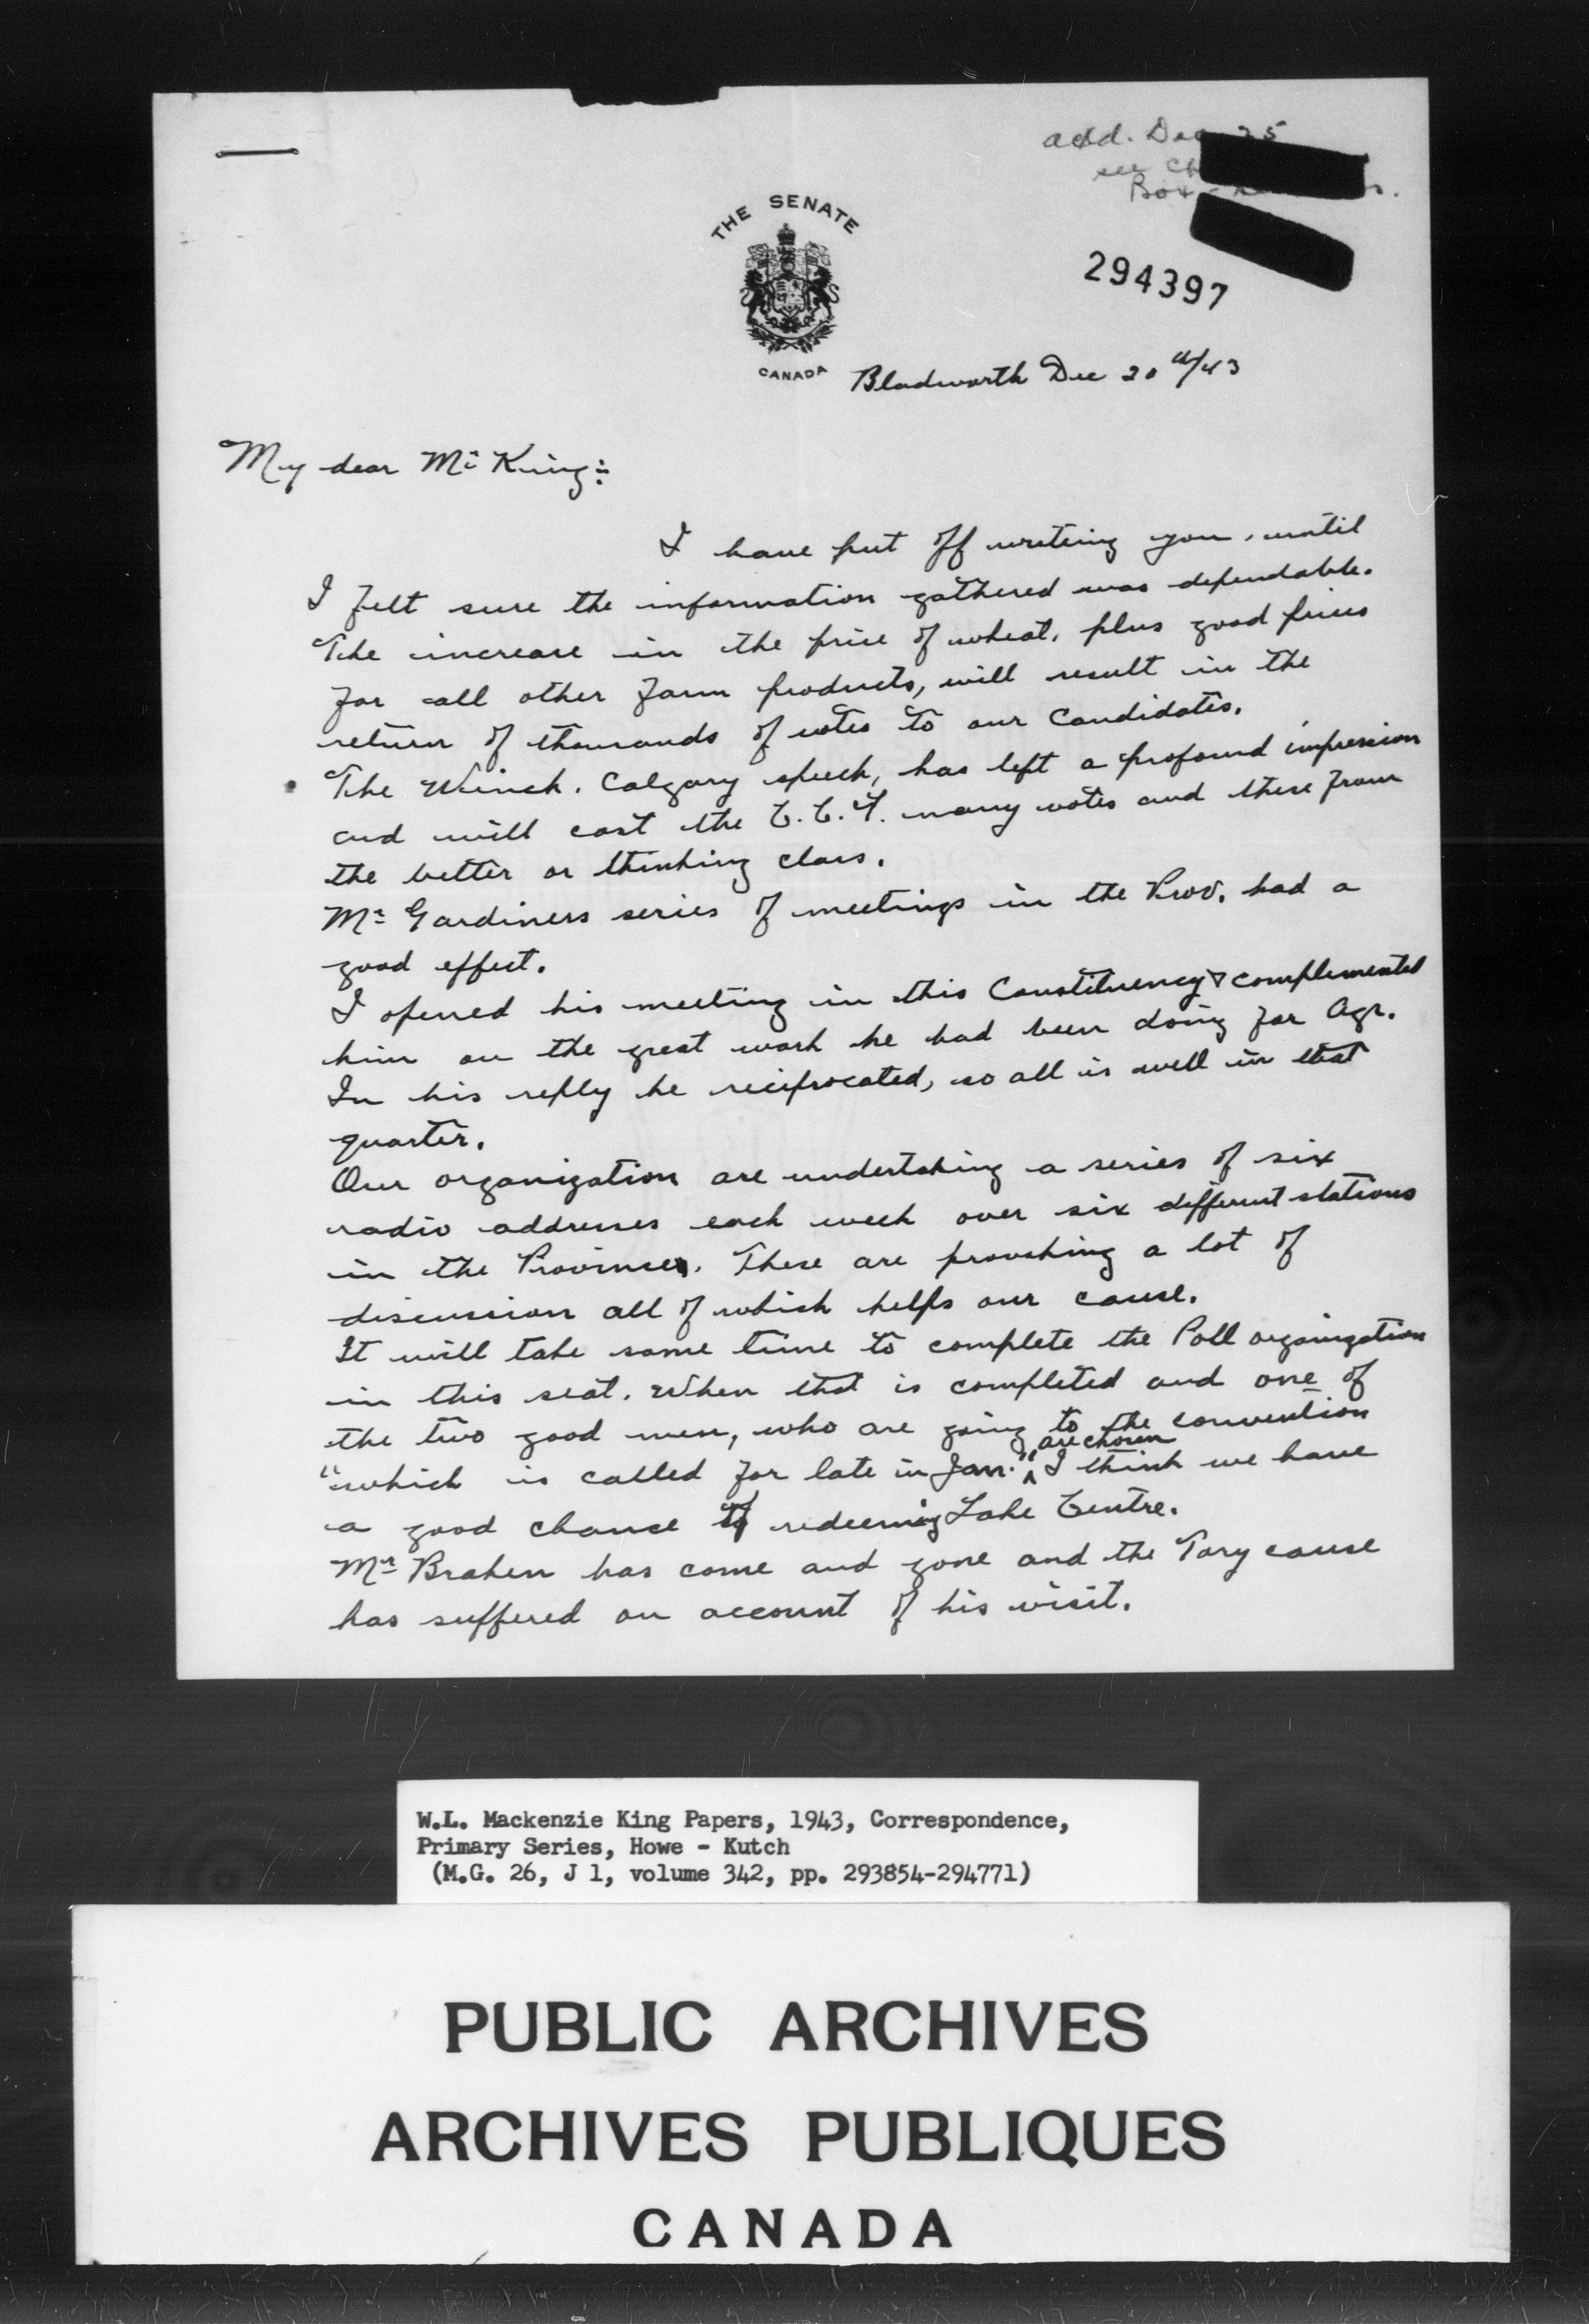 add. Dec 25
see Ch
Box -
THE SENATE
CANADA
294397
Bladworth Dec 20th/43
My dear Mr King:
I have put off writing you, until
I felt sure the information gathered was dependable.
The increase in the price of wheat, plus good prices
for all other farm products, will result in the
return of thousands of votes to our Candidates.
The Winch. Calgary speech, has left a profound impression
and will cost the C.C.F. many votes and these from
the better or thinking class.
Mr Gardiners series of meetings in the Prov. had a
good effect.
I opened his meeting in this Constituency & complemented
him on the great work he had been doing for Agr.
In his reply he reciprocated, so all is well in that
quarter.
Our organization are undertaking a series of six
radio addresses each week over six different stations
in the Province. These are provoking a lot of
discussion all of which helps our cause.
It will take some time to complete the Poll organization
in this seat. When that is completed and one of
the two good men, who are going to the convention
"which is called for late in Jan." are chosen I think we have
a good chance of redeeming Lake Centre.
Mr Braken has come and gone and the Tory cause
has suffered on account of his visit.
W.L. Mackenzie King Papers, 1943, Correspondence,
Primary Series, Howe - Kutch
(M.G. 26, J 1, volume 342, pp. 293854-294771)
PUBLIC ARCHIVES
ARCHIVES PUBLIQUES
CANADA